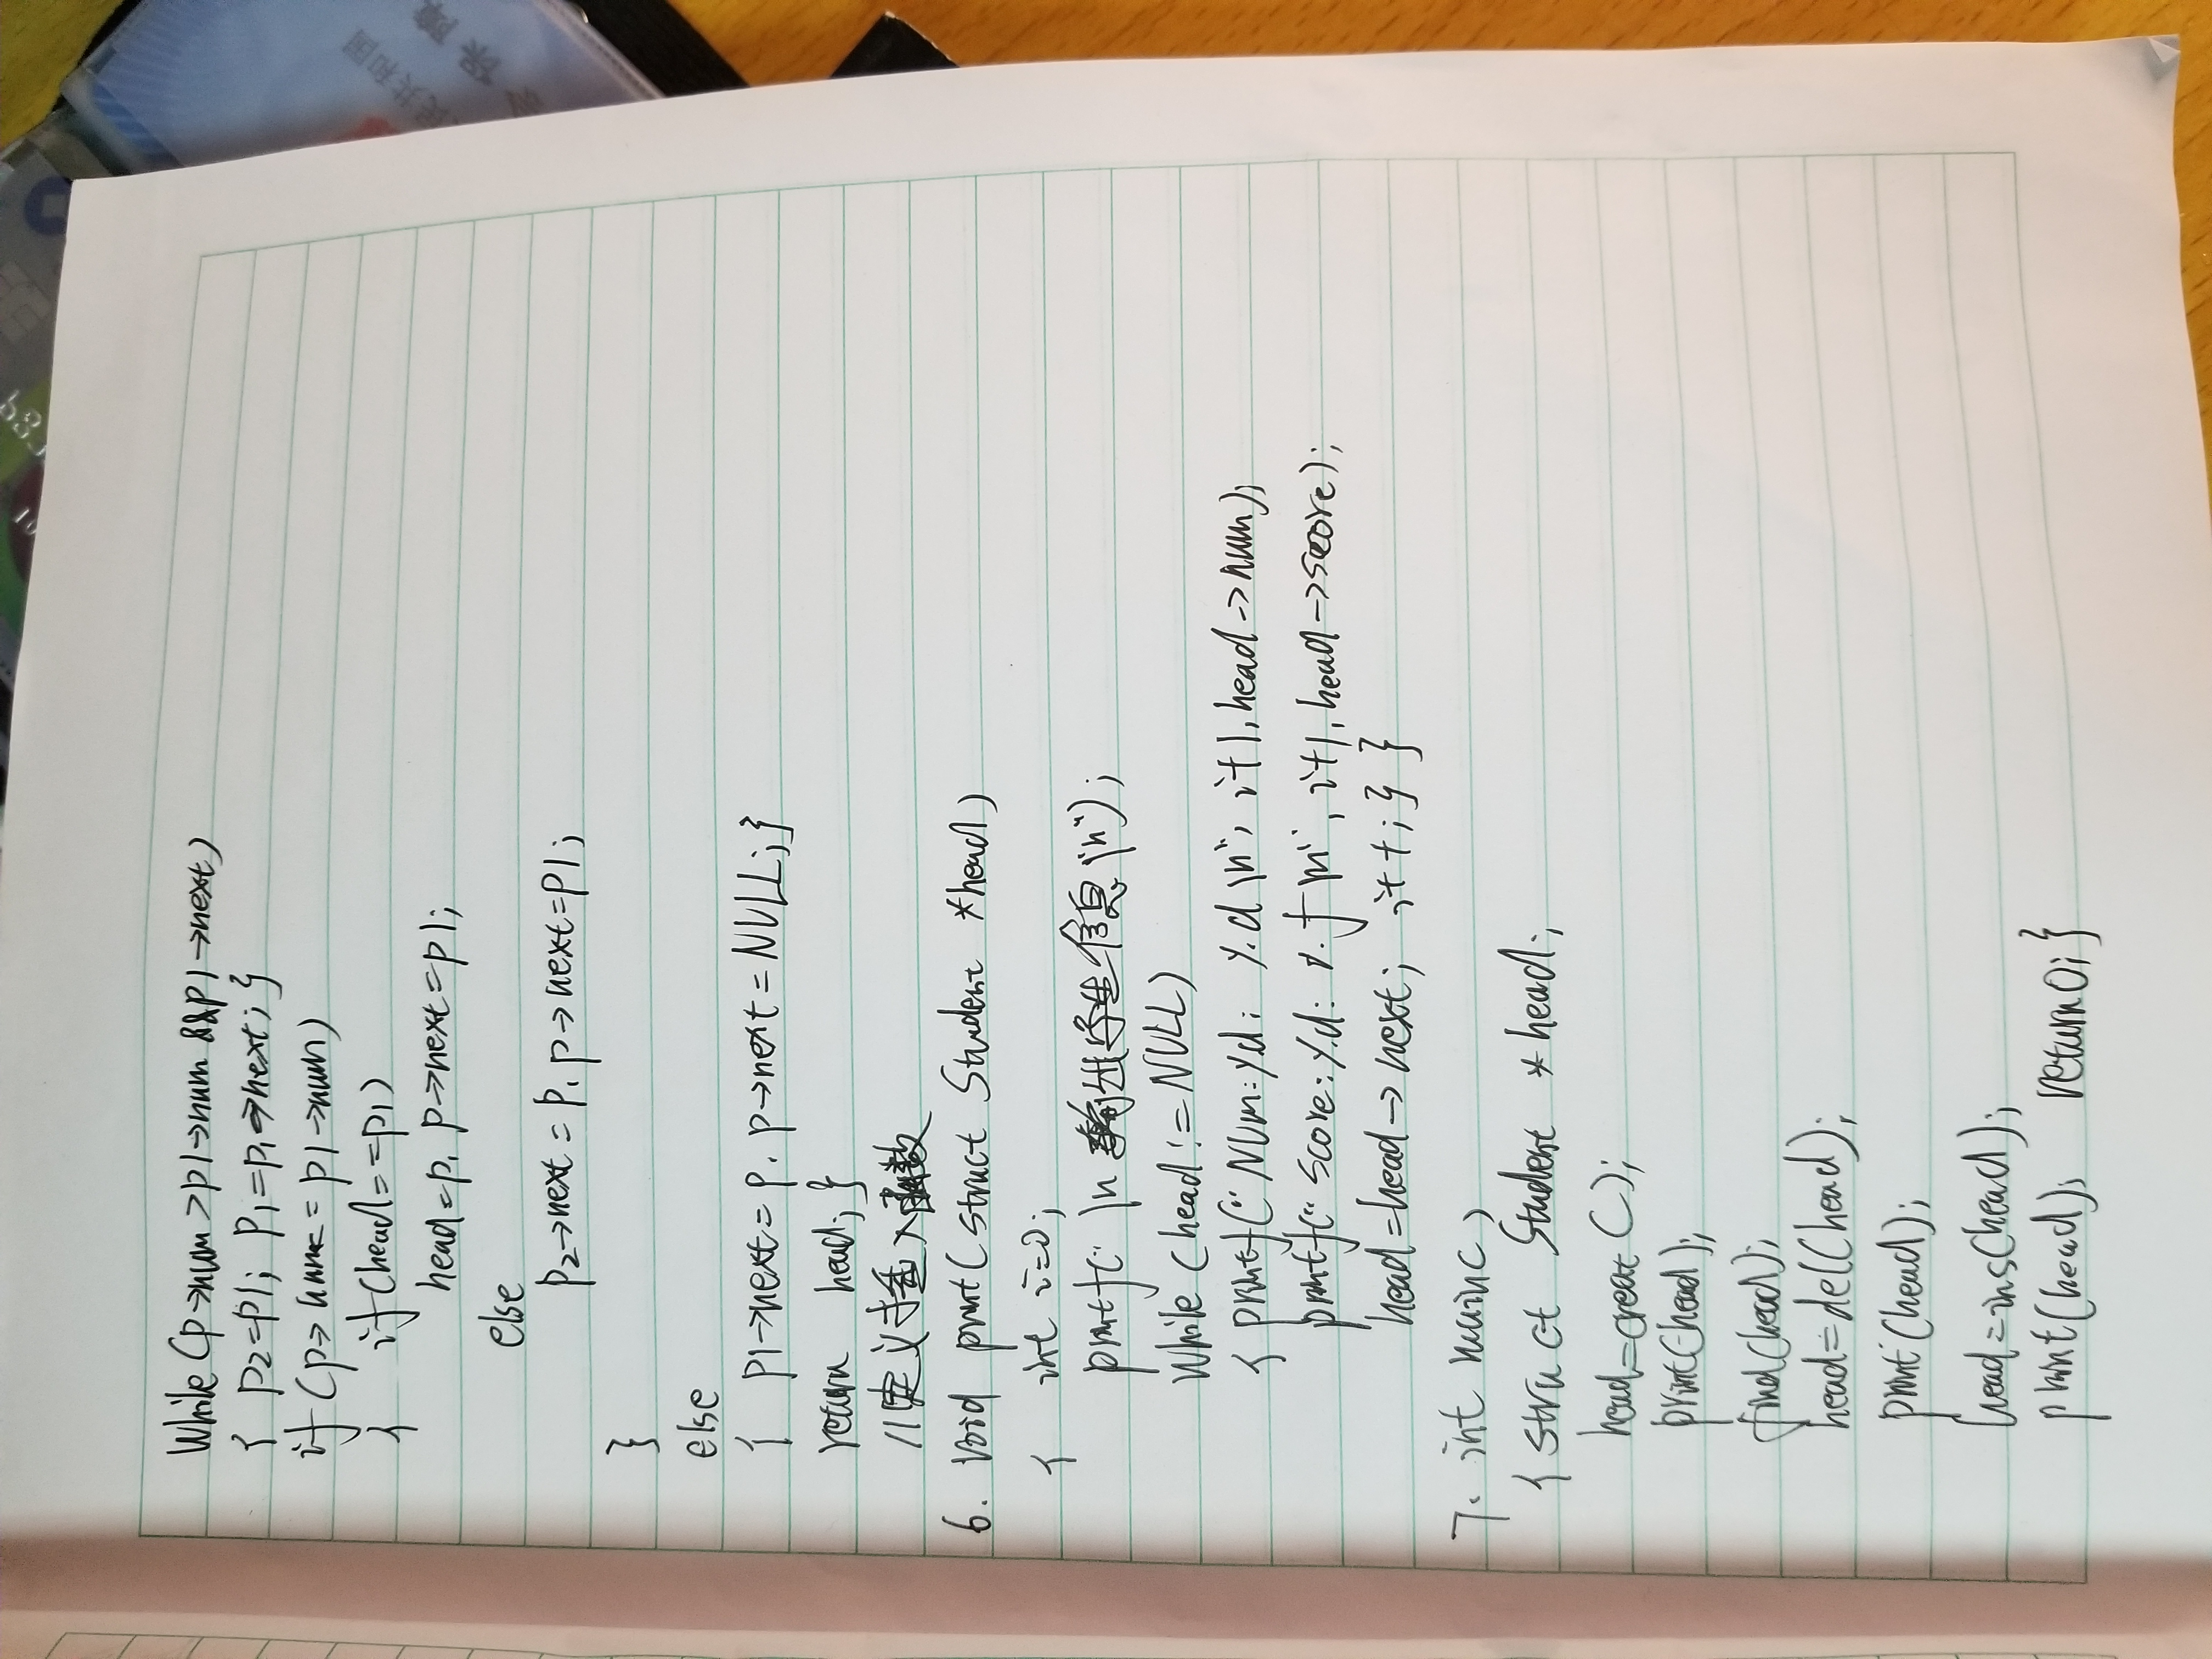 While (p->num >p1->num &&p1->next)
{ p2=p1; p1=p1->next; }
if (p->num<= p1->num)
{ if (head==p1)
head=p, p->next=p1;
else
p2->next = p, p->next=p1;
}
else
{ p1->next= p, p->next=NULL; }
return head; }
//定义插入函数
6. void print( struct Student *head)
{ int i=0;
printf(" \n 输出学生信息\n");
While (head!=NULL)
{ printf("Num:%d: %d \n", i+1, head->num);
printf(" score:%d: %f \n", i+1, head->score);
head=head-> next; i++; } }
7. int main( )
{ struct Student *head;
head=creat ();
print(head);
find(head);
head=del(head);
print(head);
head=ins(head);
print(head); return 0; }
国
共